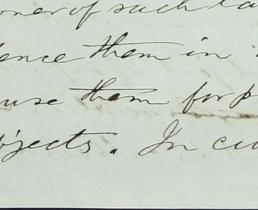 oner of such la
ence them in
use them for p
bjects. In cu